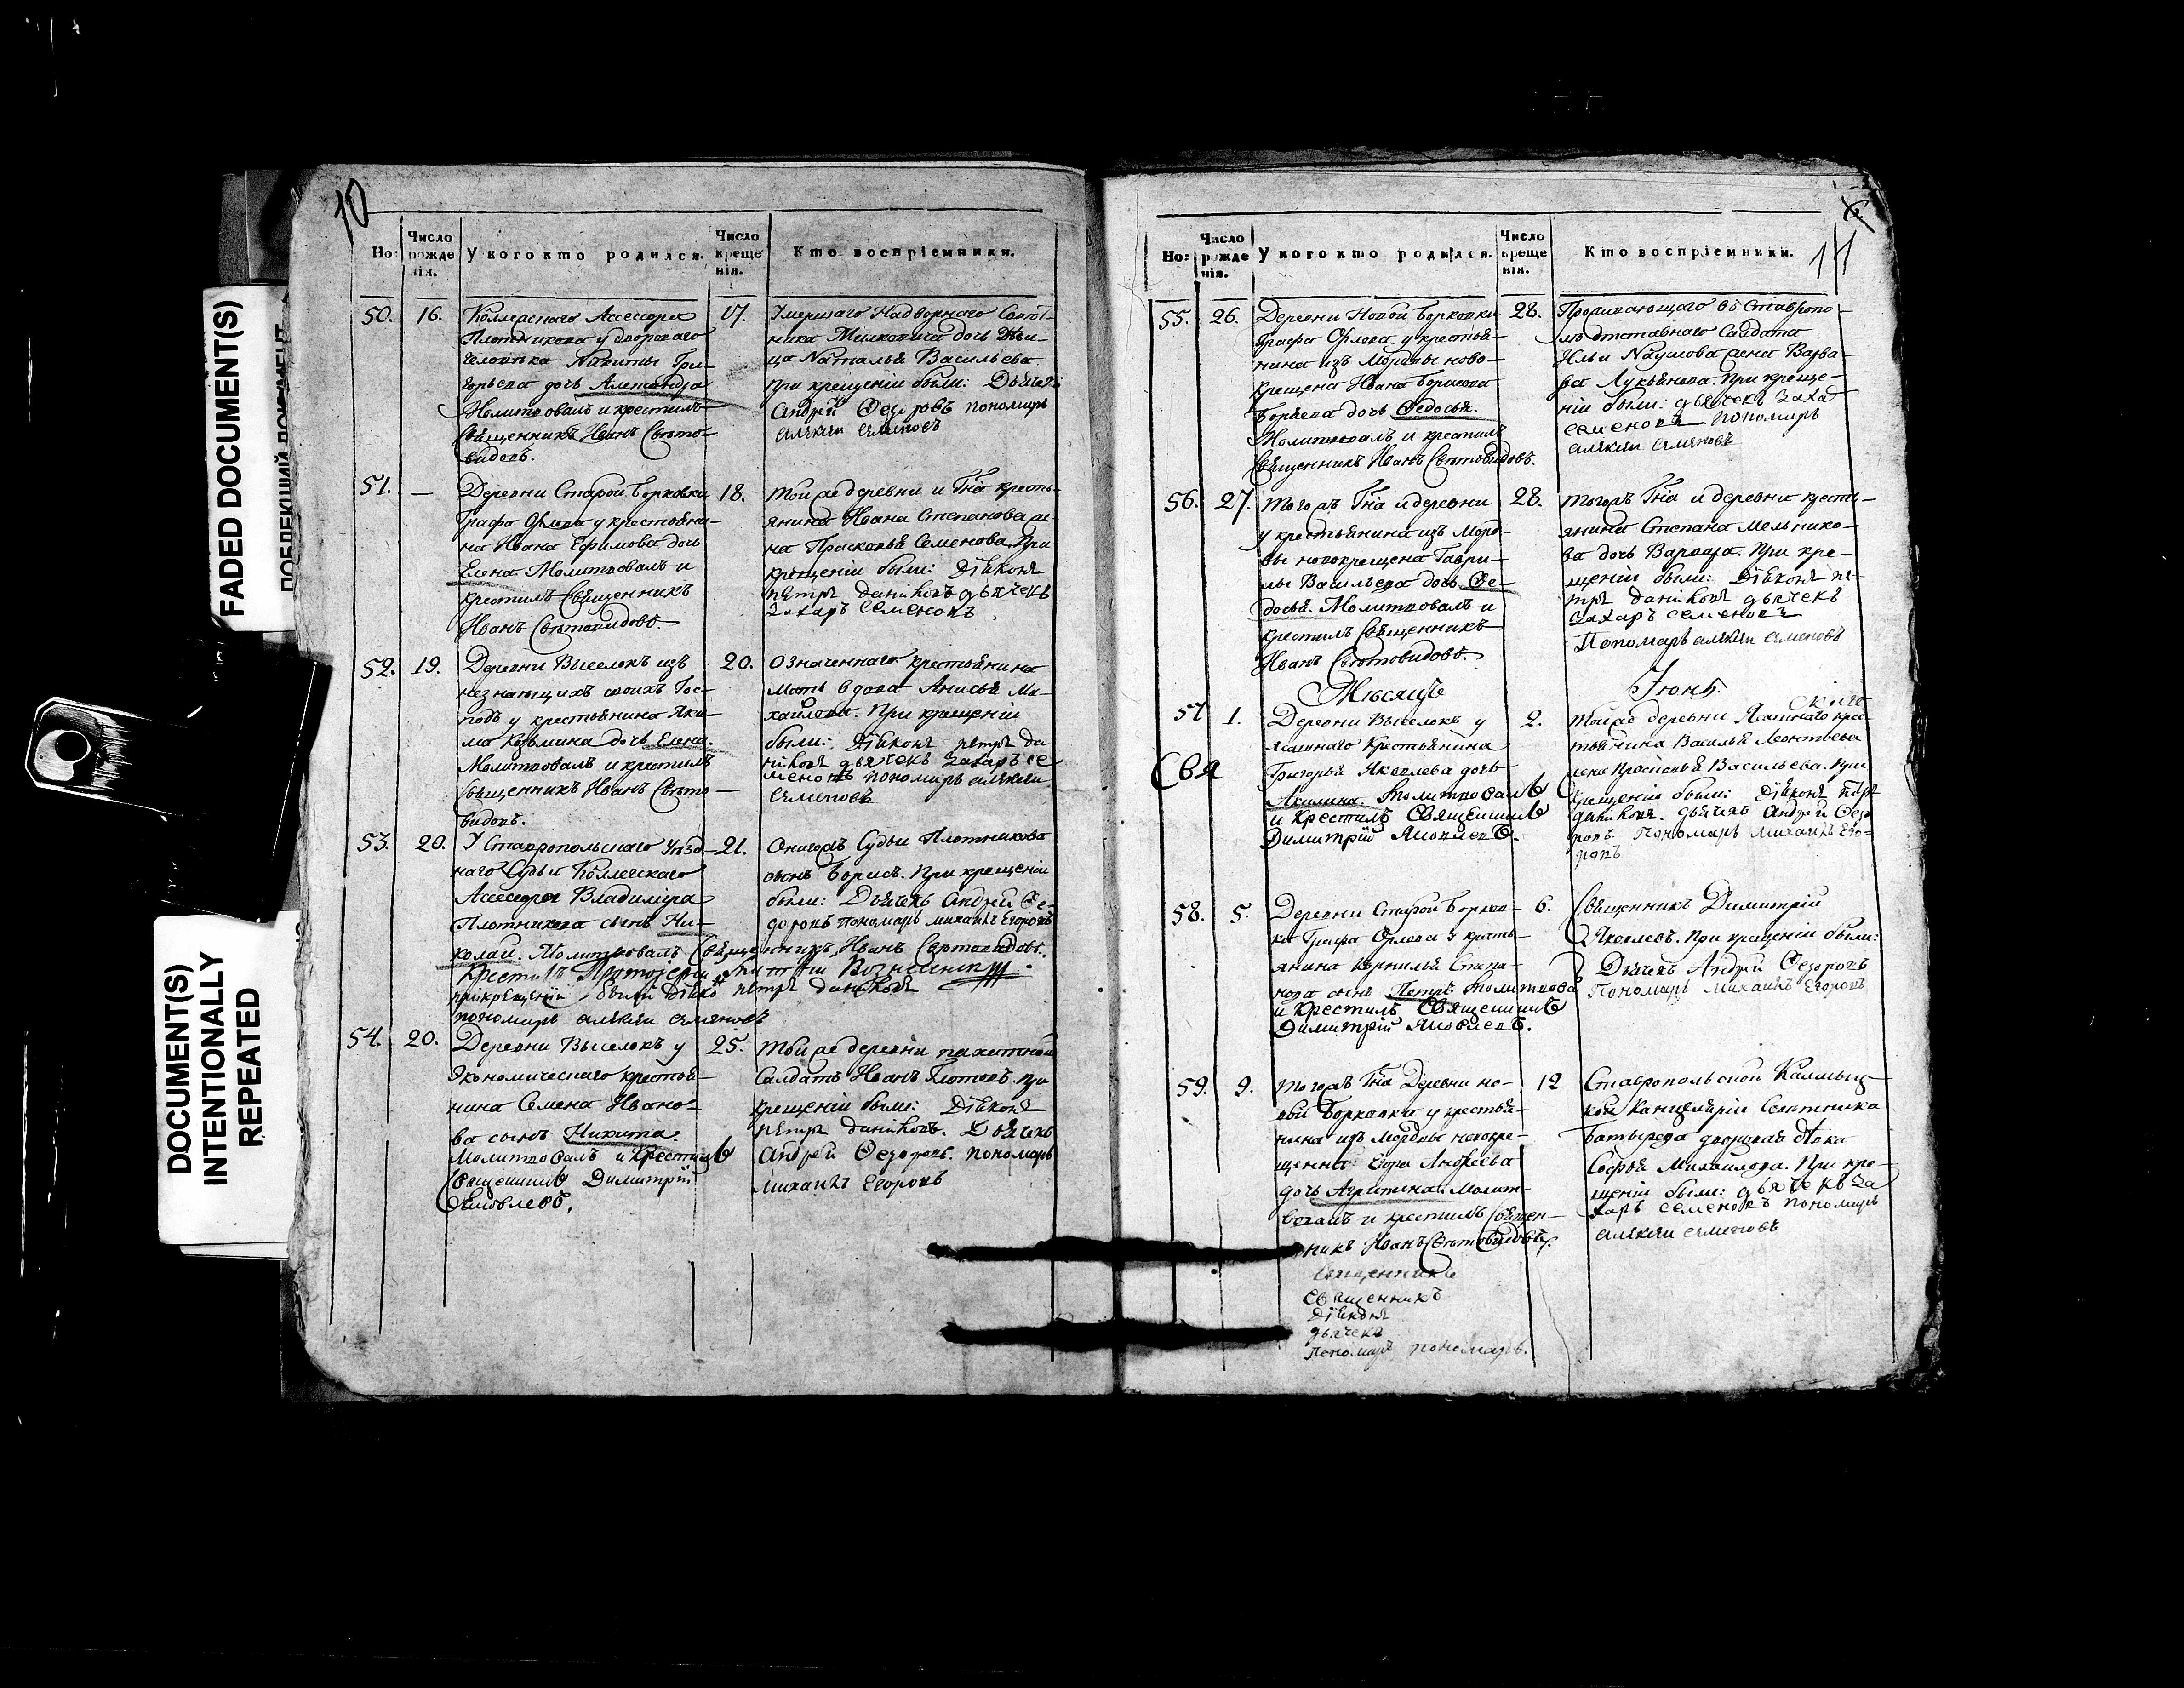 FADED DOCUMENT(S)
DOCUMENT(S)
INTENTIONALLY
REPEATED
10
Но:
Число рожденія.
У кого кто родился.
Число крещенія.
Кто воспріемники.
50. 16.
Коллежскаго Ассесора
Плотникова у двороваго
человѣка Никиты Гри-
горьева дочь Александра
Молитвовалъ и крестилъ
Священникъ Иванъ Свѣто-
видовъ.
17.
Умершаго Надворнаго Совѣт-
ника Мильковича дочь Дѣви-
ца Наталья Васильева
при крещеніи были: Дьячекъ
Андрей Федоровъ пономарь
алѣксѣи семеновъ
51. —
Деревни Старой Борковки
Графа Орлова у крестьяни-
на Ивана Ефимова дочь
Елена. Молитвовалъ и
крестилъ Священникъ
Иванъ Свѣтовидовъ.
18.
Той же деревни и Гна кресть-
янина Ивана Степанова же-
на Прасковья Семенова. При
крещеніи были: Діѣконъ
пѣтръ даниловъ дьячекъ
Захаръ Семеновъ
52. 19.
Деревни Выселокъ изъ
незнающихъ своихъ Гос-
подъ у крестьянина Яки-
ма Козьмина дочь Елена.
Молитвовалъ и крестилъ
Священникъ Иванъ Свѣто-
видовъ.
20.
Означеннаго крестьянина
мать вдова Анисья Ми-
хайлова. При крещеніи
были: Діѣконъ петръ да
ниловъ дьячекъ Захаръ се
меновъ пономарь алѣксѣи
семеновъ
53. 20.
У Ставропольскаго Уѣзд-
наго Судьи Коллежскаго
Ассесора Владимира
Плотникова сынъ Ни-
колай. Молитвовалъ Священникъ Иванъ Свѣтовидовъ.
Крестилъ Протоіерей
прикрещеніи были Діѣконъ петръ даниловъ
пономарь алѣксѣи семеновъ
21.
Онагожъ Судьи Плотникова
сынъ Борисъ. При крещеніи
были: Дьячекъ Андрей Фе-
доровъ пономарь михаилъ Егоровъ
54. 20.
Деревни Выселокъ у
Экономическаго крестья-
нина Семена Ивано-
ва сынъ Никита.
Молитвовалъ и Крестилъ
Священникъ Димитрій
Яковлевъ.
25.
Той же деревни пахотной
Салдатъ Иванъ. При
крещеніи были: Діѣконъ
пѣтръ даниловъ. Дьячекъ
Андрей Федоровъ. пономарь
Михаилъ Егоровъ
11
Но:
Число рожденія.
У кого кто родился.
Число крещенія.
Кто воспріемники.
55. 26.
Деревни Новой Борковки
Графа Орлова у крестья-
нина изъ Мордвы ново-
крещена Ивана Борисова
дочь Федосья.
Молитвовалъ и крестилъ
Священникъ Иванъ Свѣтовидовъ.
28.
Проживающаго въ Ставропо-
лѣ отставнаго Салдата
Ильи Наумова жена Варва-
ра Лукьянова. При креще-
ніи были: дьячекъ Заха
семеновъ пономарь
алѣксѣи семеновъ
56. 27.
Тогожъ Гна и деревни
у крестьянина изъ Морд-
вы новокрещена Гаври-
лы Васильева дочь Фе-
досья. Молитвовалъ и
крестилъ Священникъ
Иванъ Свѣтовидовъ.
28.
Тогожъ Гна и деревни кресть-
янина Степана Мельнико-
ва дочь Варвара. При кре-
щеніи были: Діѣконъ пе-
тръ даниловъ дьячекъ
Захаръ семеновъ
Пономарь алѣксѣи семеновъ
Мѣсяцъ Іюнь.
57 1.
Деревни Выселокъ у
Ясашнаго Крестьянина
Григорья Яковлева дочь
Акилина. Молитвовалъ
и Крестилъ Священникъ
Димитрій Яковлевъ.
Свя
2.
Той же деревни Ясашнаго крес-
тьянина Василья Леонтьева
жена Прасковья Васильева. При
крещеніи были: Діѣконъ Петръ
даниловъ. дьячекъ Андрей Федо
ровъ Пономарь Михаилъ Его-
ровъ
58. 5.
Деревни Старой Борков-
ки Графа Орлова у кресть-
янина Корнилья Степа-
нова сынъ Петръ. Молитвовалъ
и Крестилъ Священникъ
Димитрій Яковлевъ.
6.
Священникъ Димитрій
Яковлевъ. При крещеніи были:
Дьячекъ Андрей Федоровъ
Пономарь Михаилъ Егоровъ
59. 9.
Тогожъ Гна Деревни но-
вой Борковки у крестья-
нина изъ Мордвы новокре-
щенна Егора Андреева
дочь Агрипина. Молит-
вовалъ и крестилъ Священ-
никъ Иванъ Свѣтовидовъ.
12
Ставропольской Калмыц-
кой Канцеляріи Совѣтника
Батырева дворовая дѣвка
Софья Михайлова. При кре-
щеніи были: дьячекъ За
харъ семеновъ пономарь
алѣксѣи семеновъ
Священникъ
Священникъ
Діѣконъ
дьячекъ
Пономарь пономарь.